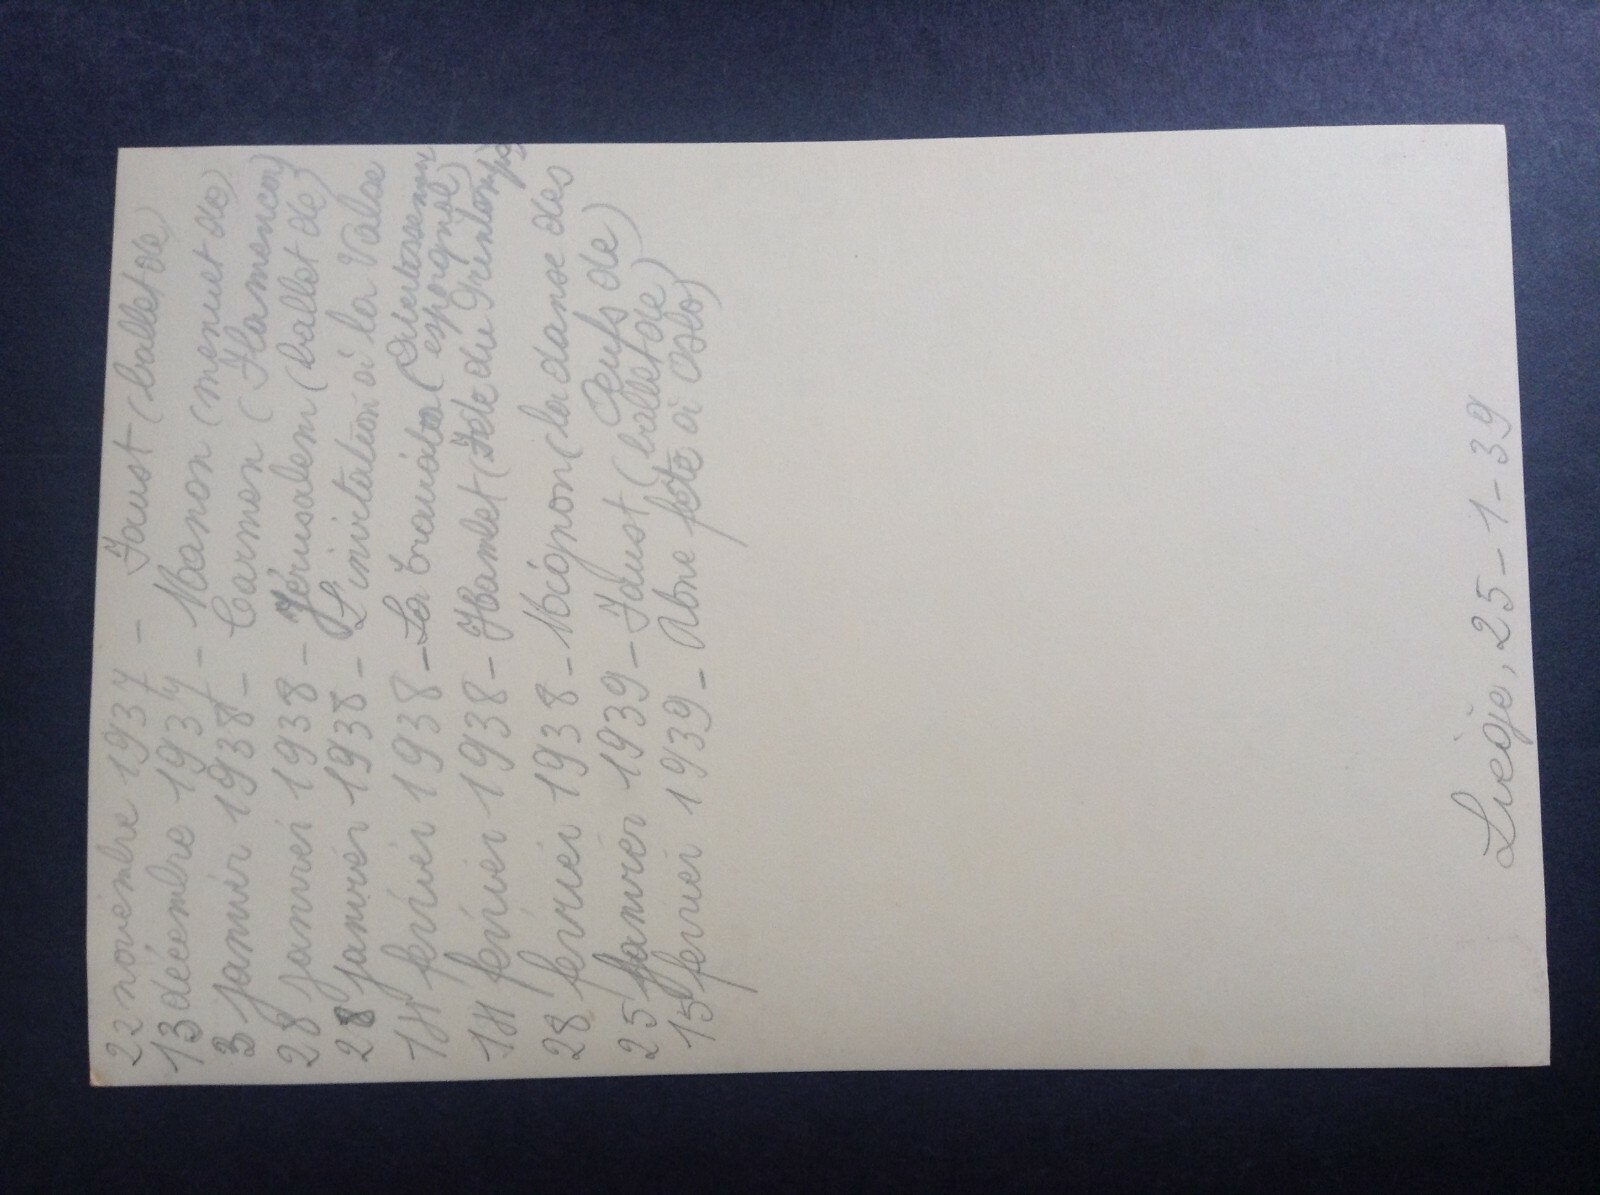 22 novembre 1937 - Faust (ballet de)
13 décembre 1937 - Manon (menuet de)
3 janvir 1938 - Carmen (Flamencon)
28 janvier 1938 - Jérusalem (ballet de)
28 janvier 1938 - L'invitation à la Valse
14 fevrier 1938 - La Traviata (
espagnol)
14 fevrier 1938 - Hamlet (Fete du Printemps)
28 février 1938 - Mignon (la danse des
Oeufs de)
25 janvier 1939 - Faust (ballet de)
15 fevrier 1939 - Une fete à Oslo)
Liège, 25-1-39